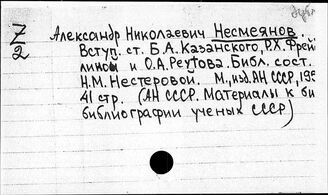 Z
2
Александр Николаевич Несмеянов.
Вступ. ст. Б.А. Казанского, Р.Х. Фрей
линой и О.А. Реутова. Библ. сост.
Н.М. Нестеровой. М., изд. АН СССР, 195
41 стр. (АН СССР. Материалы к би
библиографии ученых СССР)